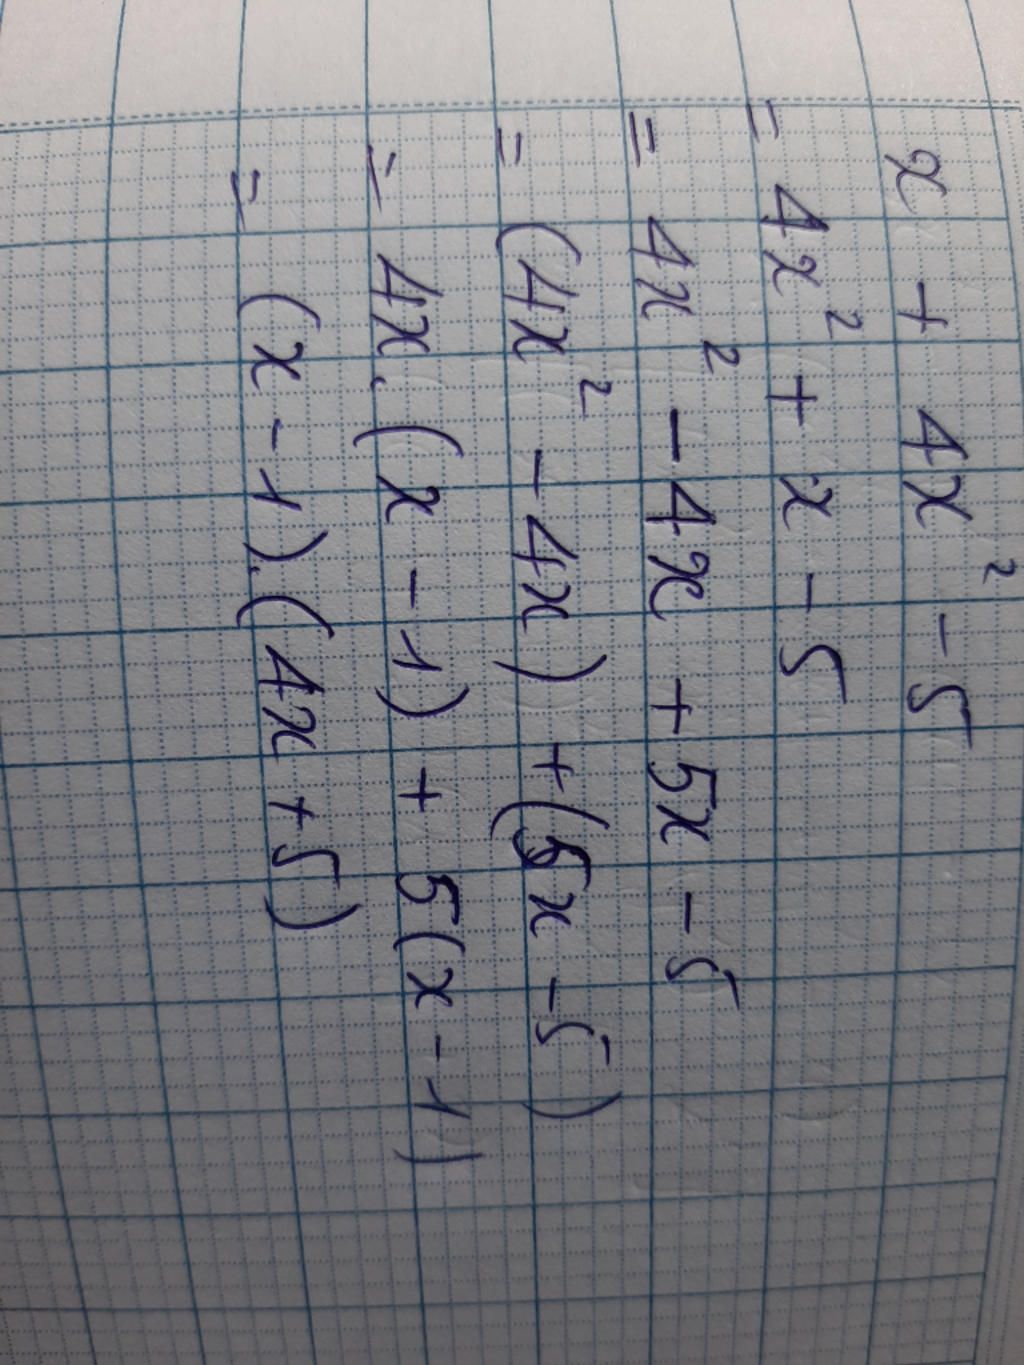 x + 4x² - 5
= 4x² + x - 5
= 4x² - 4x + 5x - 5
= (4x² - 4x) + (5x - 5)
= 4x.(x - 1) + 5(x - 1)
= (x - 1).(4x + 5)